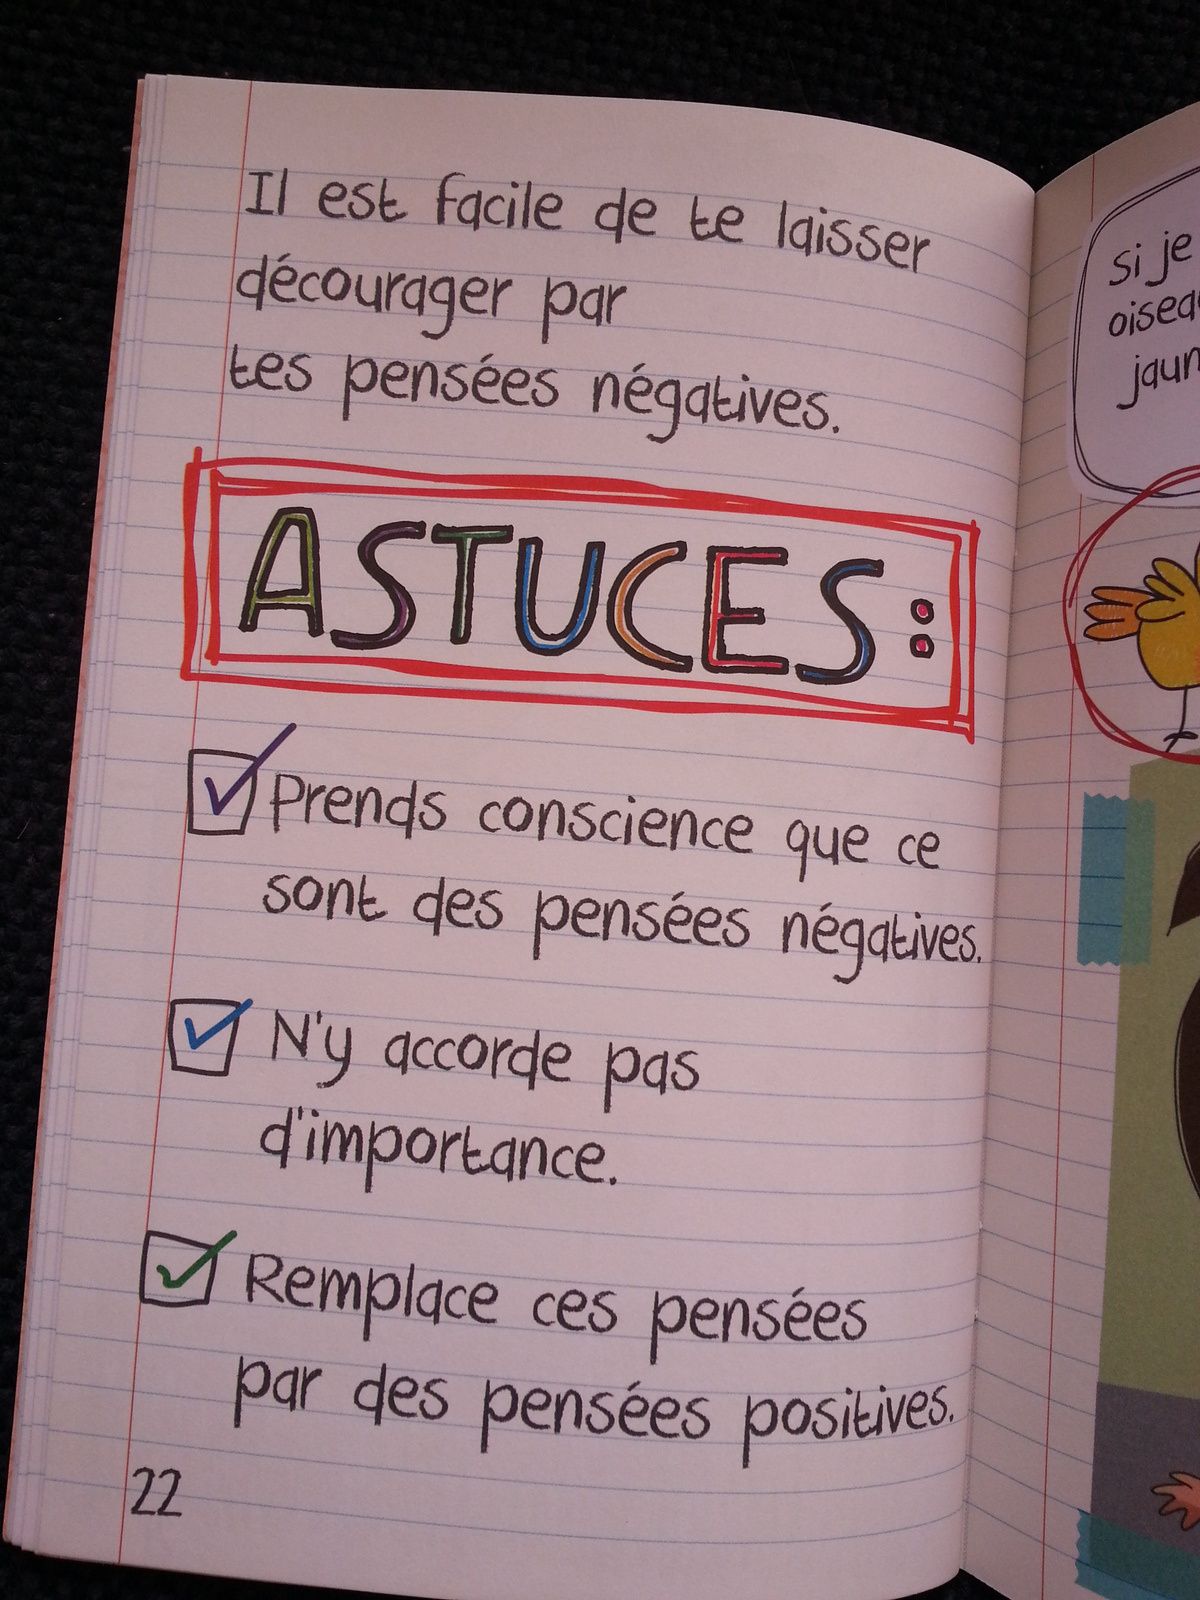 Il est facile de te laisser
décourager par
tes pensées négatives.
ASTUCES:
Prends conscience que ce
sont des pensées négatives.
N'y accorde pas
d'importance.
Remplace ces pensées
par des pensées positives.
22
Si je